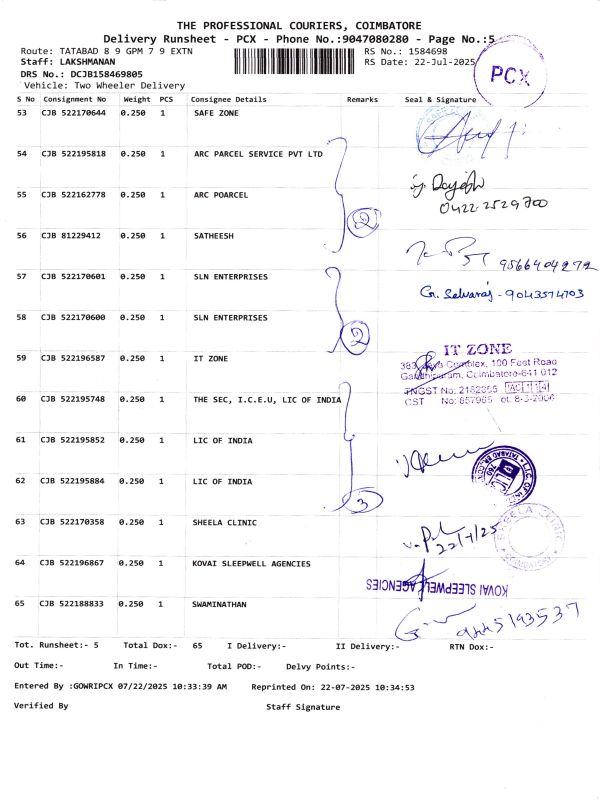 THE PROFESSIONAL COURIERS, COIMBATORE
Delivery Runsheet - PCX - Phone No.:9047080280 - Page No.:5
Route: TATABAD 8 9 GPM 7 9 EXTN RS No.: 1584698
Staff: LAKSHMANAN RS Date: 22-Jul-2025
DRS No.: DCJB158469805
Vehicle: Two Wheeler Delivery
PCX
S No Consignment No Weight PCS Consignee Details Remarks Seal & Signature
53 CJB 522170644 0.250 1 SAFE ZONE
54 CJB 522195818 0.250 1 ARC PARCEL SERVICE PVT LTD
55 CJB 522162778 0.250 1 ARC POARCEL
0422-2529700
2
56 CJB 81229412 0.250 1 SATHEESH
9566404272
57 CJB 522170601 0.250 1 SLN ENTERPRISES
G. Selvaraj - 9043574703
58 CJB 522170600 0.250 1 SLN ENTERPRISES
2
59 CJB 522196587 0.250 1 IT ZONE
IT ZONE
Complex, 100 Feet Road
Gandhipuram, Coimbatore-641 012
CST No: 857965 dt. 8-3-2006
60 CJB 522195748 0.250 1 THE SEC, I.C.E.U, LIC OF INDIA
61 CJB 522195852 0.250 1 LIC OF INDIA
62 CJB 522195884 0.250 1 LIC OF INDIA
3
63 CJB 522170358 0.250 1 SHEELA CLINIC
22/7/25
SHEELA CLINIC
64 CJB 522196867 0.250 1 KOVAI SLEEPWELL AGENCIES
KOVAI SLEEPWELL AGENCIES
65 CJB 522188833 0.250 1 SWAMINATHAN
9445193537
Tot. Runsheet:- 5 Total Dox:- 65 I Delivery:- II Delivery:- RTN Dox:-
Out Time:- In Time:- Total POD:- Delvy Points:-
Entered By :GOWRIPCX 07/22/2025 10:33:39 AM Reprinted On: 22-07-2025 10:34:53
Verified By Staff Signature